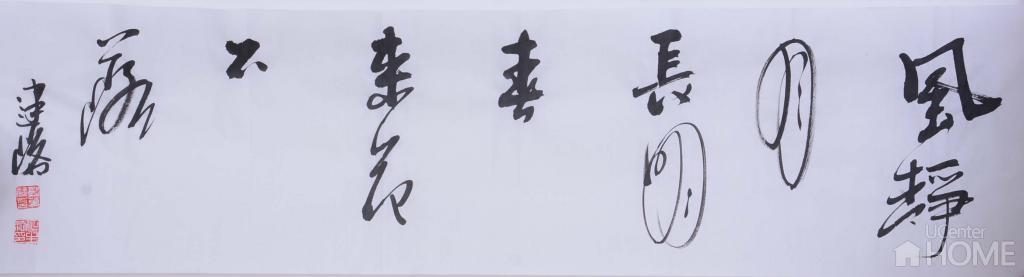 風靜
月
長明
春
來花
不
落
UCenter
HOME